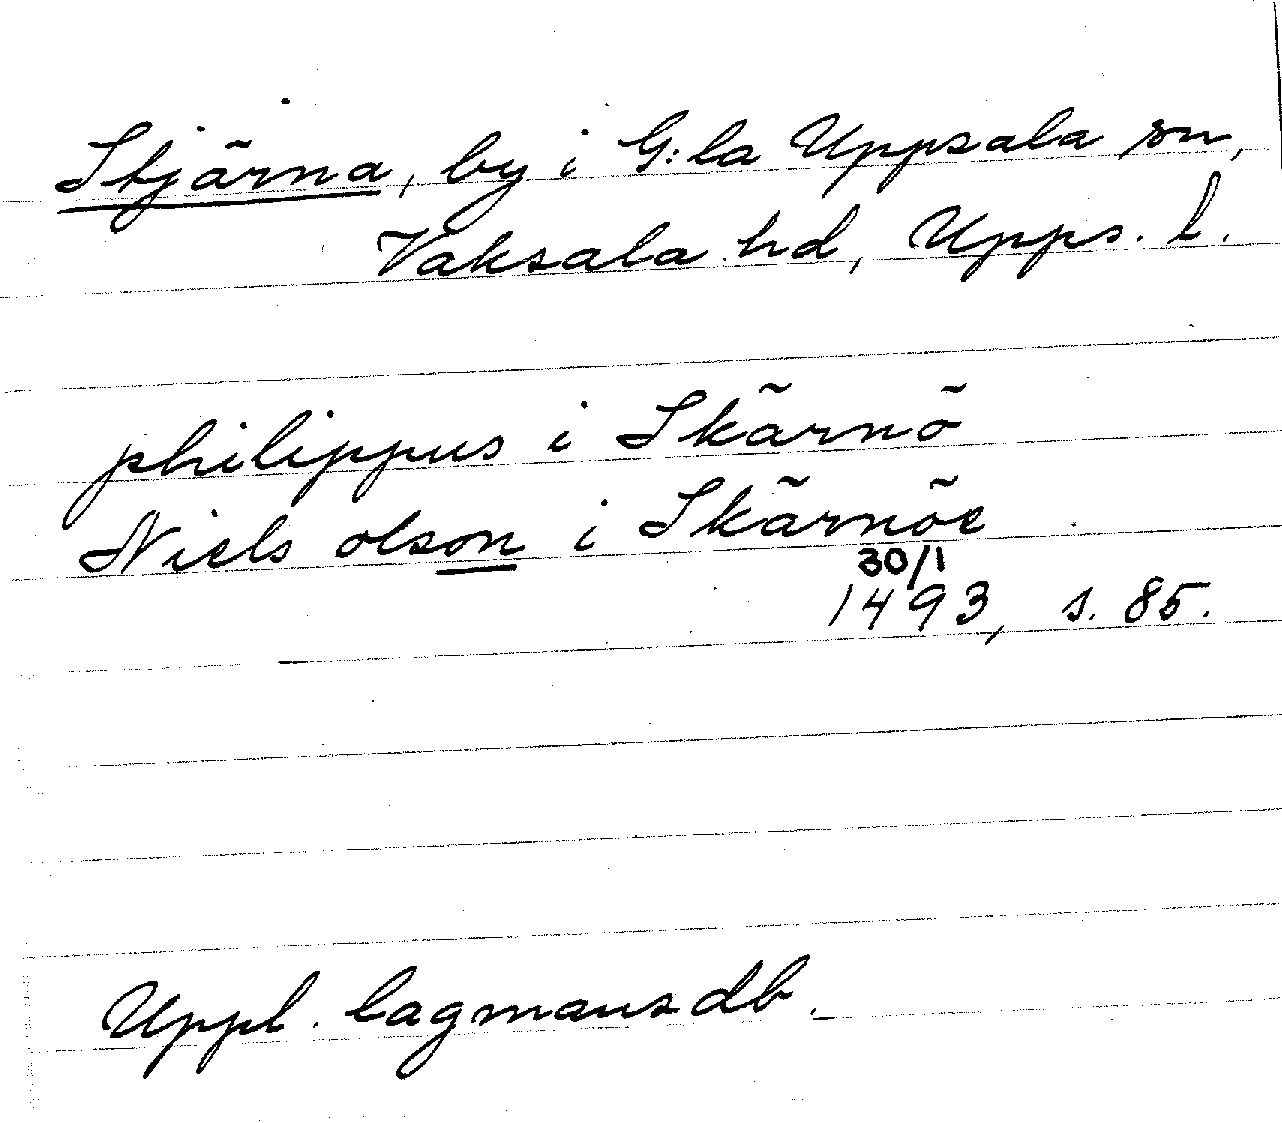 Skjärna, by i G:la Uppsala sn,
Vaksala hd, Upps. l.
philippus i Skärnö
Niels olson i Skärnöe
30/1
1493, s. 85.
Uppl. lagmansdb.